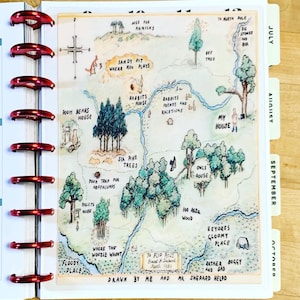 TO NORTH POLE
NICE FOR
PICNICKS
BEE
TREE
SANDY PIT
WHERE ROO PLAYS
RABBITS
HOUSE
RABBITS
FRIENDS AND
RELATIONS
POOH BEARS
HOUSE
MY
HOUSE
SIX PINE
TREES
POOH TRAP FOR
HEFFALUMPS
OWLS
HOUSE
PIGLETS
HOUSE
100 AKER
WOOD
WHERE THE
WOOZLE WASNT
EEYORES
GLOOMY
PLACE
FLOODY
PLACE
RATHER BOGGY
AND SAD
DRAWN BY ME AND MR SHEPARD HELPD
JULY
AUGUST
SEPTEMBER
OCTOBER